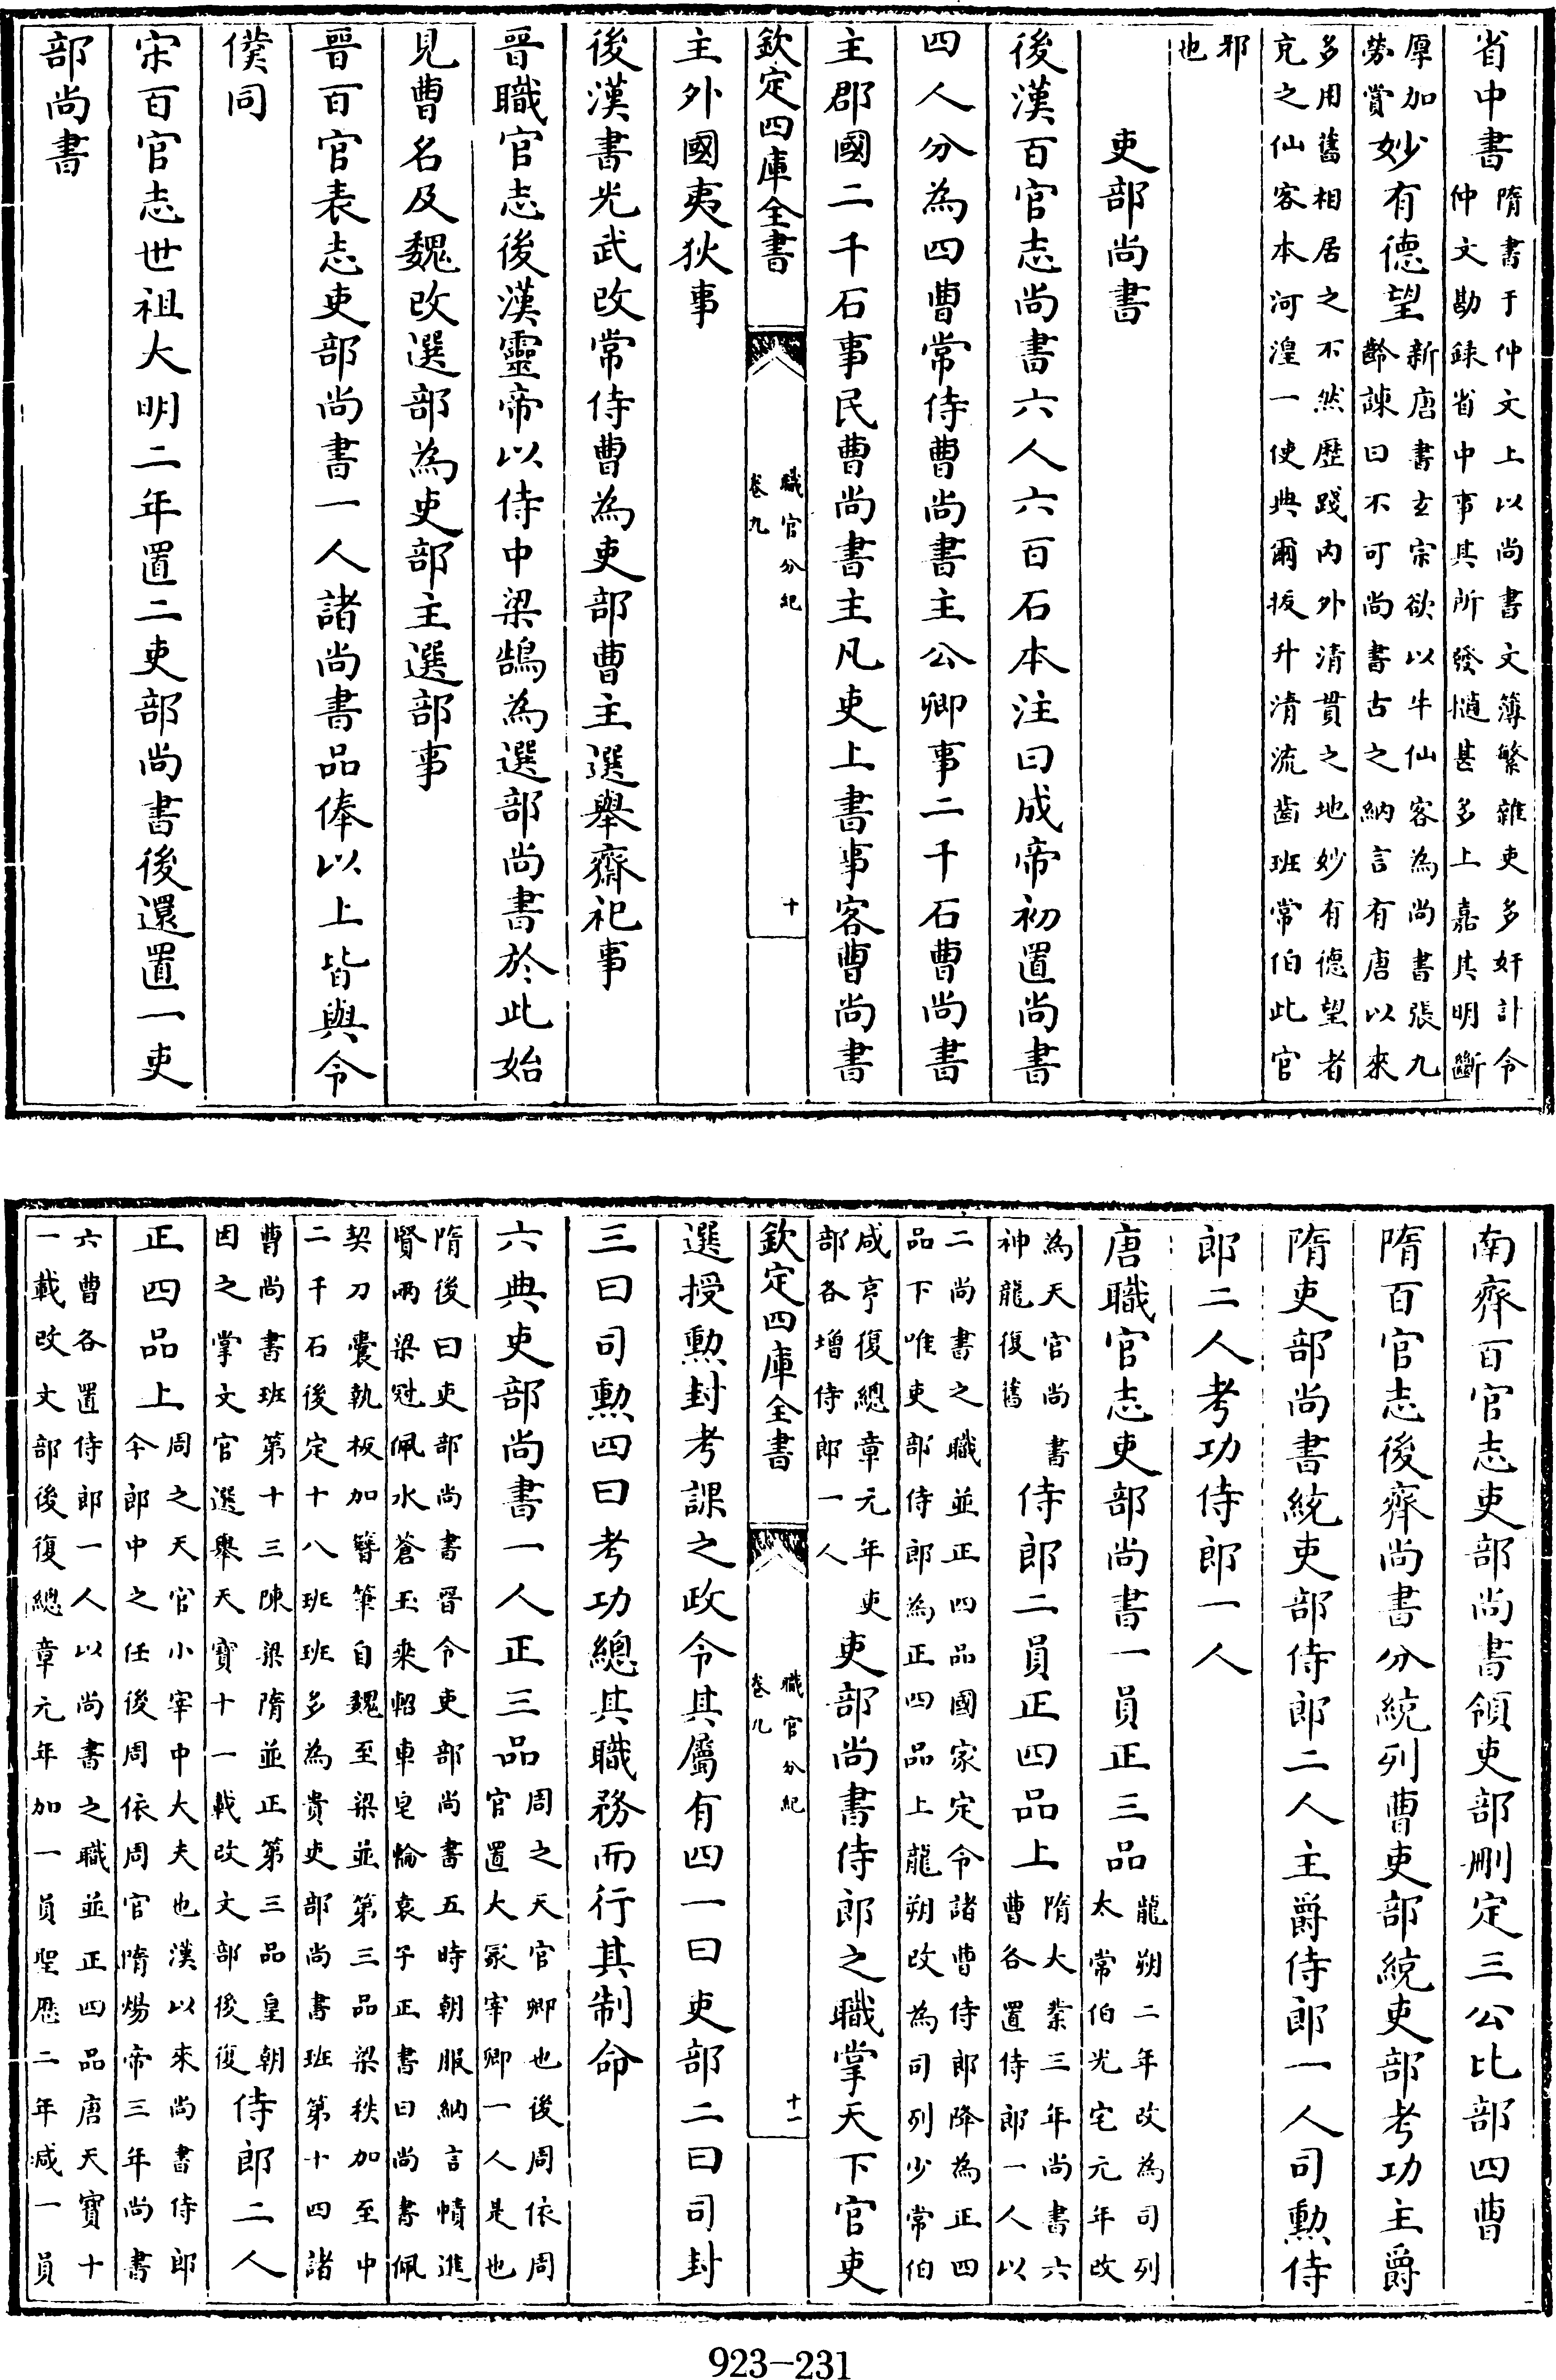 省中書隋書于仲文上以尚書文簿繁雜吏多奸計令仲文勘録省中事其所發擿甚多上嘉其明斷
厚加勞賞妙有德望新唐書玄宗欲以牛仙客為尚書張九齡諫曰不可尚書古之納言有唐以來
多用舊相居之不然歷踐内外清貫之地妙有德望者克之仙客本河湟一使典爾拔升清流齒班常伯此官
邪也
吏部尚書
後漢百官志尚書六人六百石本注曰成帝初置尚書
四人分為四曹常侍曹尚書主公卿事二千石曹尚書
主郡國二千石事民曹尚書主凡吏上書事客曹尚書
欽定四庫全書 職官分紀 卷九 十
主外國夷狄事
後漢書光武改常侍曹為吏部曹主選舉齋祀事
晉職官志後漢靈帝以侍中梁鵠為選部尚書於此始
見曹名及魏改選部為吏部主選部事
晉百官表志吏部尚書一人諸尚書品俸以上皆與令
僕同
宋百官志世祖大明二年置二吏部尚書後還置一吏
部尚書
南齊百官志吏部尚書領吏部刪定三公比部四曹
隋百官志後齊尚書分統列曹吏部統吏部考功主爵
隋吏部尚書統吏部侍郎二人主爵侍郎一人司勲侍
郎二人考功侍郎一人
唐職官志吏部尚書一員正三品龍朔二年改為司列太常伯光宅元年改
為天官尚書神龍復舊侍郎二員正四品上隋大業三年尚書六曹各置侍郎一人以
二尚書之職並正四品國家定令諸曹侍郎降為正四品下唯吏部侍郎為正四品上龍朔改為司列少常伯
咸亨復總章元年吏部各增侍郎一人吏部尚書侍郎之職掌天下官吏
欽定四庫全書 職官分紀 卷九 十一
選授勲封考課之政令其屬有四一曰吏部二曰司封
三曰司勲四曰考功總其職務而行其制命
六典吏部尚書一人正三品周之天官卿也後周依周官置大冢宰卿一人是也
隋後曰吏部尚書晉令吏部尚書五時朝服納言幘進賢兩梁冠佩水蒼玉乘軺車皂輪袁子正書曰尚書佩
契刀囊執板加簪筆自魏至梁並第三品梁秩加至中二千石後定十八班班多為貴吏部尚書班第十四諸
曹尚書班第十三陳梁隋並正第三品皇朝因之掌文官選舉天寶十一載改文部後復侍郎二人
正四品上周之天官小宰中大夫也漢以來尚書侍郎今郎中之任後周依周官隋煬帝三年尚書
六曹各置侍郎一人以尚書之職並正四品唐天寶十一載改文部後復總章元年加一員聖厯二年减一員
923-231